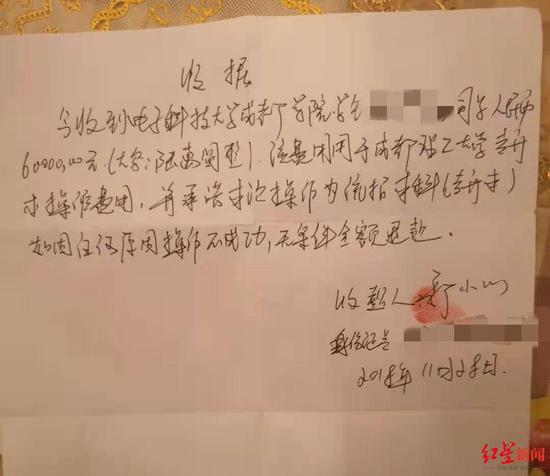 收据
今收到电子科技大学成都学院学生 同学人民币
60000,00元(大写:陆萬圆整).该费用用于成都理工大学专升
本操作费用,并承诺本次操作为统招本科(专升本)
如因任何原因操作不成功,无条件全额退款。
收款人 小
身份证号
2018年11月28日.
红星新闻